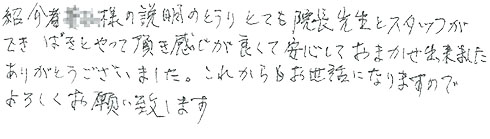 紹介者 様の説明のとうり とても 院長先生とスタッフが
てきぱきとやって頂き感じが良くて安心しておまかせ出来ました
ありがとうございました。これからもお世話になりますので
よろしくお願い致します